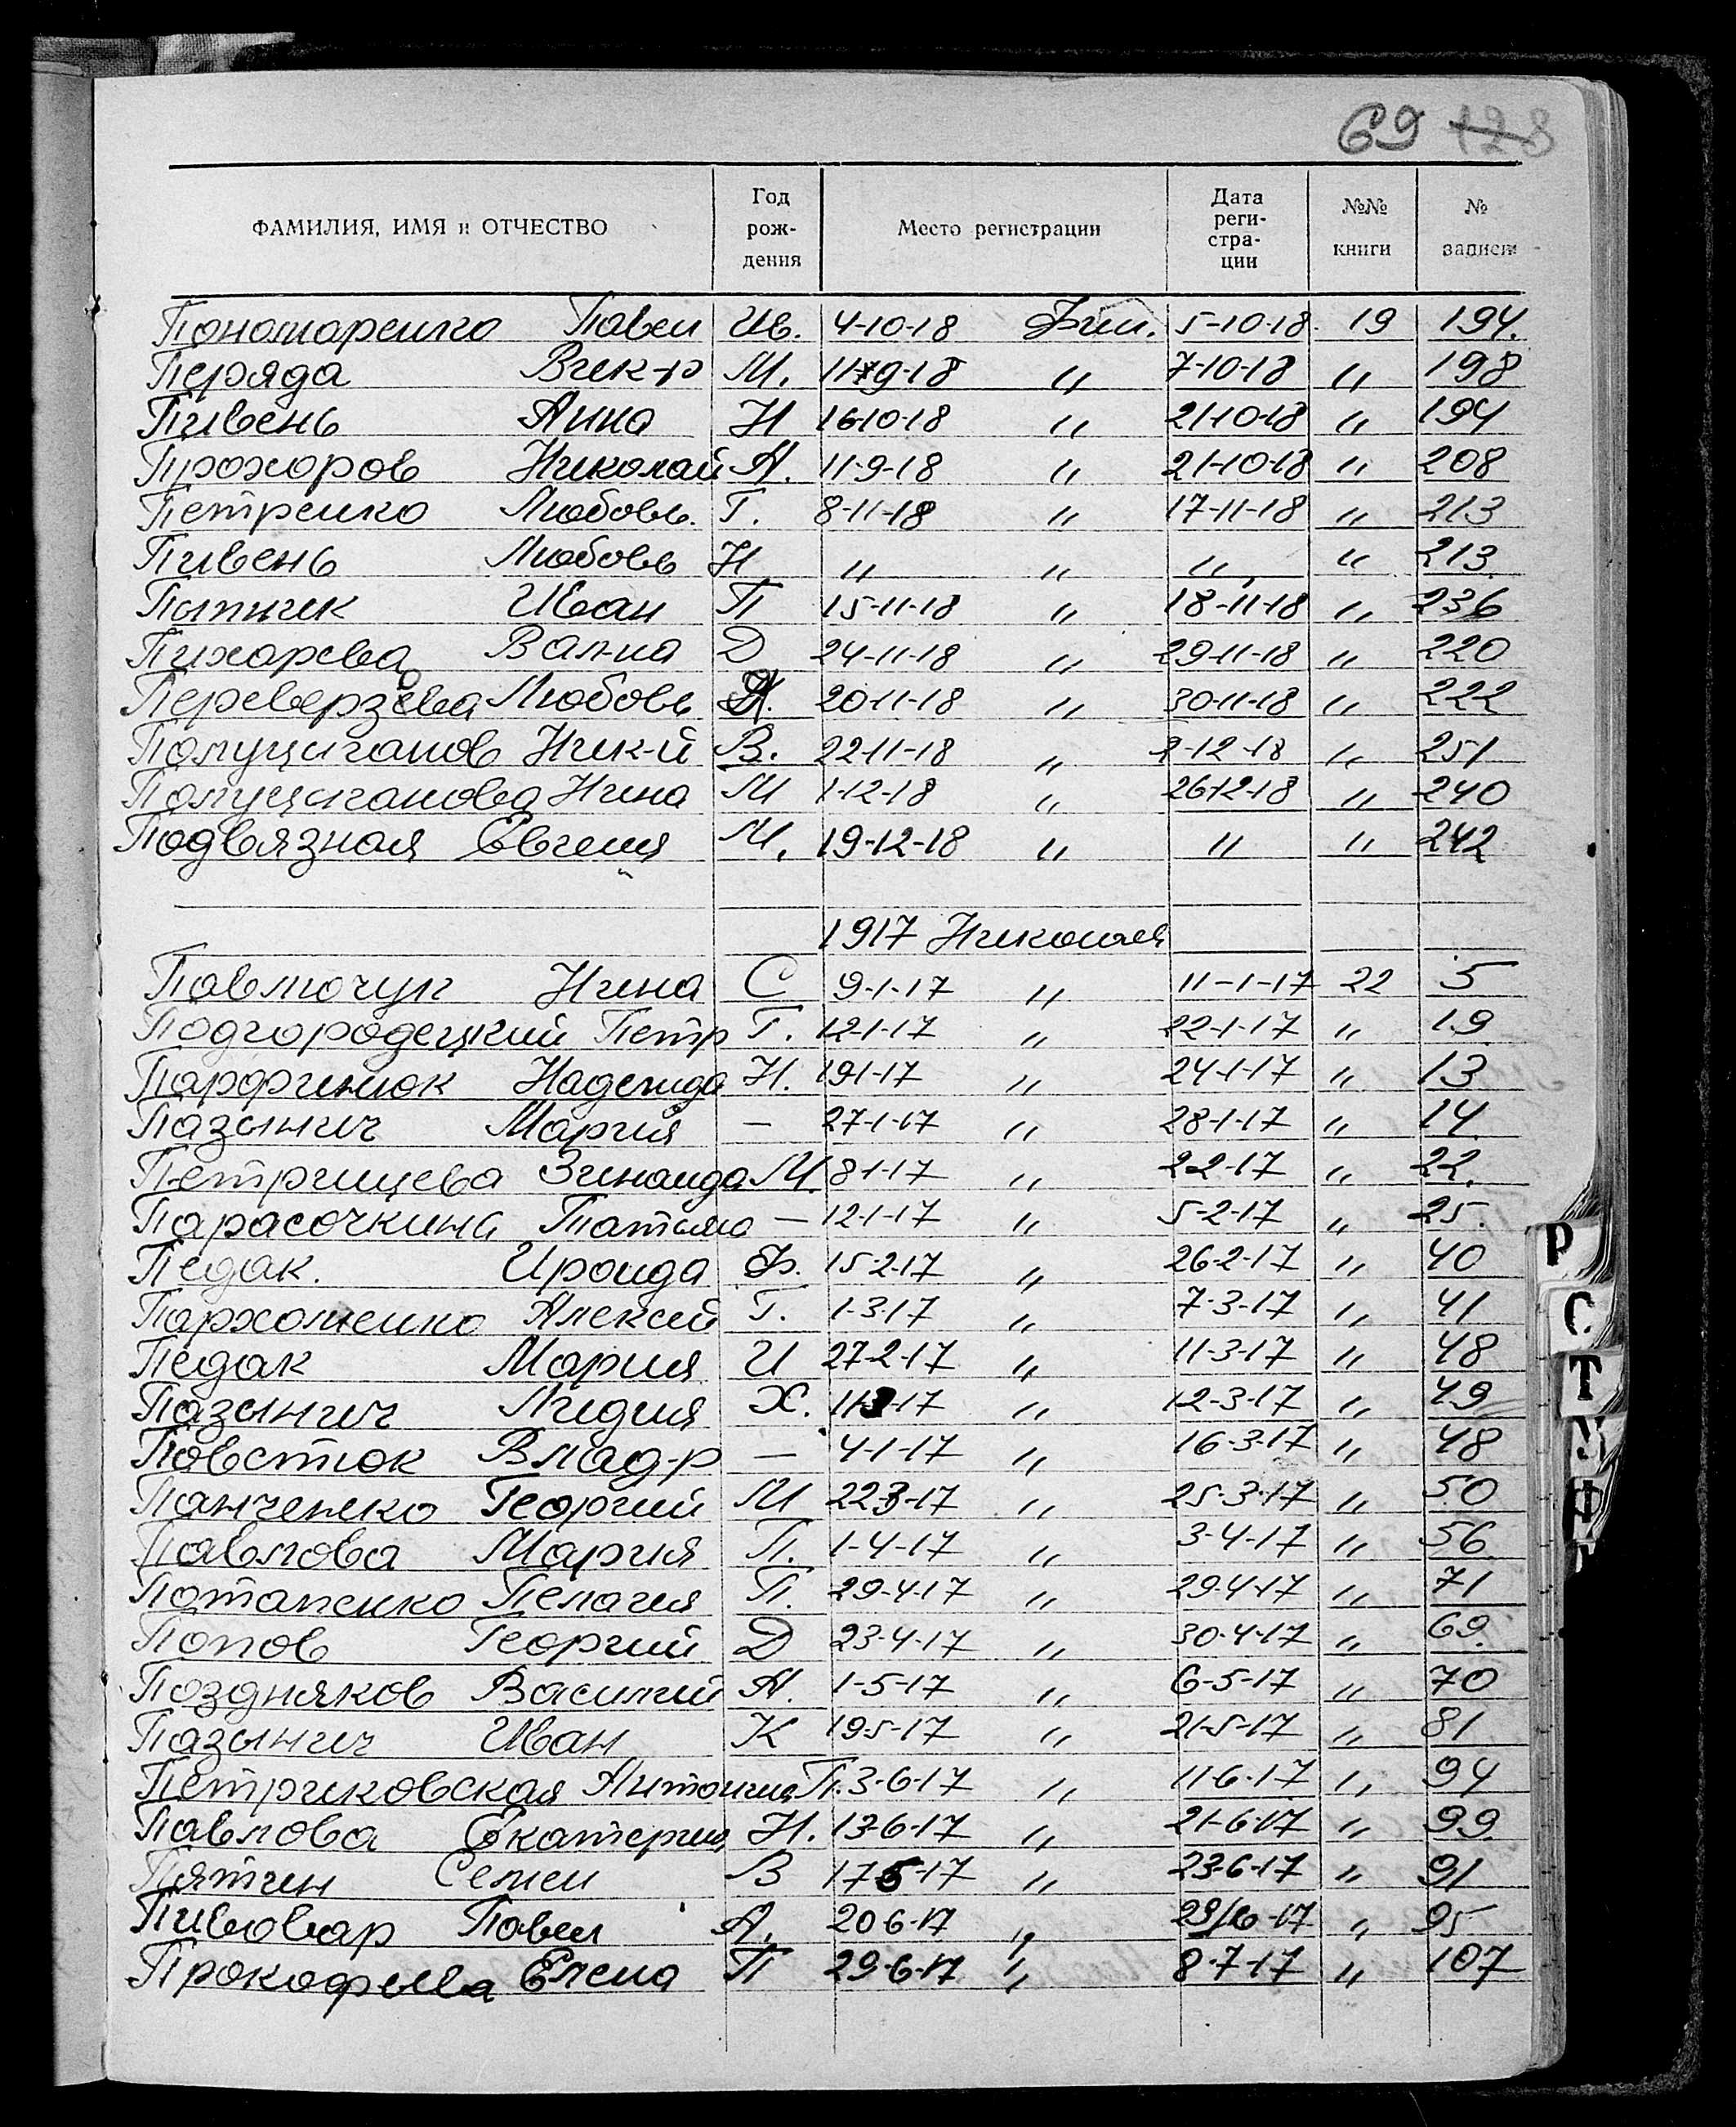 69 128
ФАМИЛИЯ, ИМЯ и ОТЧЕСТВО Год рож- дения Место регистрации Дата реги- стра- ции №№ книги № записи
Пономаренко Павел Ив. 4-10-18 Фил. 5-10-18 19 194.
Перяда Вик-р М. 11-9-18 " 7-10-18 " 198
Пивень Анна Н 16-10-18 " 21-10-18 " 194
Прохоров Николай А. 11-9-18 " 21-10-18 " 208
Петренко Любовь. Г. 8-11-18 " 17-11-18 " 213
Пивень Любовь Н " " " " 213
Пыпник Иван П 15-11-18 " 18-11-18 " 236
Пихарева Вал-на Д 24-11-18 " 29-11-18 " 220
Переверзева Любовь 20-11-18 " 30-11-18 " 222
Полуциганов Ник-й В. 22-11-18 " -12-18 " 251
Полуциганова Нина М 1-12-18 " 26-12-18 " 240
Подвязная Евгения М. 19-12-18 " " " 242
1917 Николая
Павлючук Нина С 9-1-17 " 11-1-17 22 5
Подгородецкий Петр Г. 12-1-17 " 22-1-17 " 19
Парфинюк Надежда Н. 19-1-17 " 24-1-17 " 13
Пазынич Мария — 27-1-17 " 28-1-17 " 14
Петрищева Зинаида М. 8-1-17 " 2-2-17 " 22.
Парасочкина Татьяна — 12-1-17 " 5-2-17 " 25.
Педак. Ироида Ф. 15-2-17 " 26-2-17 " 40
Пархоменко Алексей Г. 1-3-17 " 7-3-17 " 41
Педак Мария И 27-2-17 " 11-3-17 " 48
Пазынич Лидия Х. 11-3-17 " 12-3-17 " 49
Повстюк Влад-р — 4-1-17 " 16-3-17 " 48
Панченко Георгий М 22-3-17 " 25-3-17 " 50
Павлова Мария П. 1-4-17 " 3-4-17 " 56
Потапенко Пелагия П. 29-4-17 " 29-4-17 " 71
Попов Георгий Д 23-4-17 " 30-4-17 " 69.
Поздняков Василий А. 1-5-17 " 6-5-17 " 70
Пазынич Иван К 19-5-17 " 21-5-17 " 81
Петриковская Антонина П. 3-6-17 " 11-6-17 " 94
Павлова Екатерина Н. 13-6-17 " 21-6-17 " 99.
Пятин Семен В 17-5-17 " 23-6-17 " 91
Пивовар Павел А. 20-6-17 " 29/6-17 " 95
Прокофьева Елена П 29-6-17 " 8-7-17 " 107
Р
С
Т
У
Ф